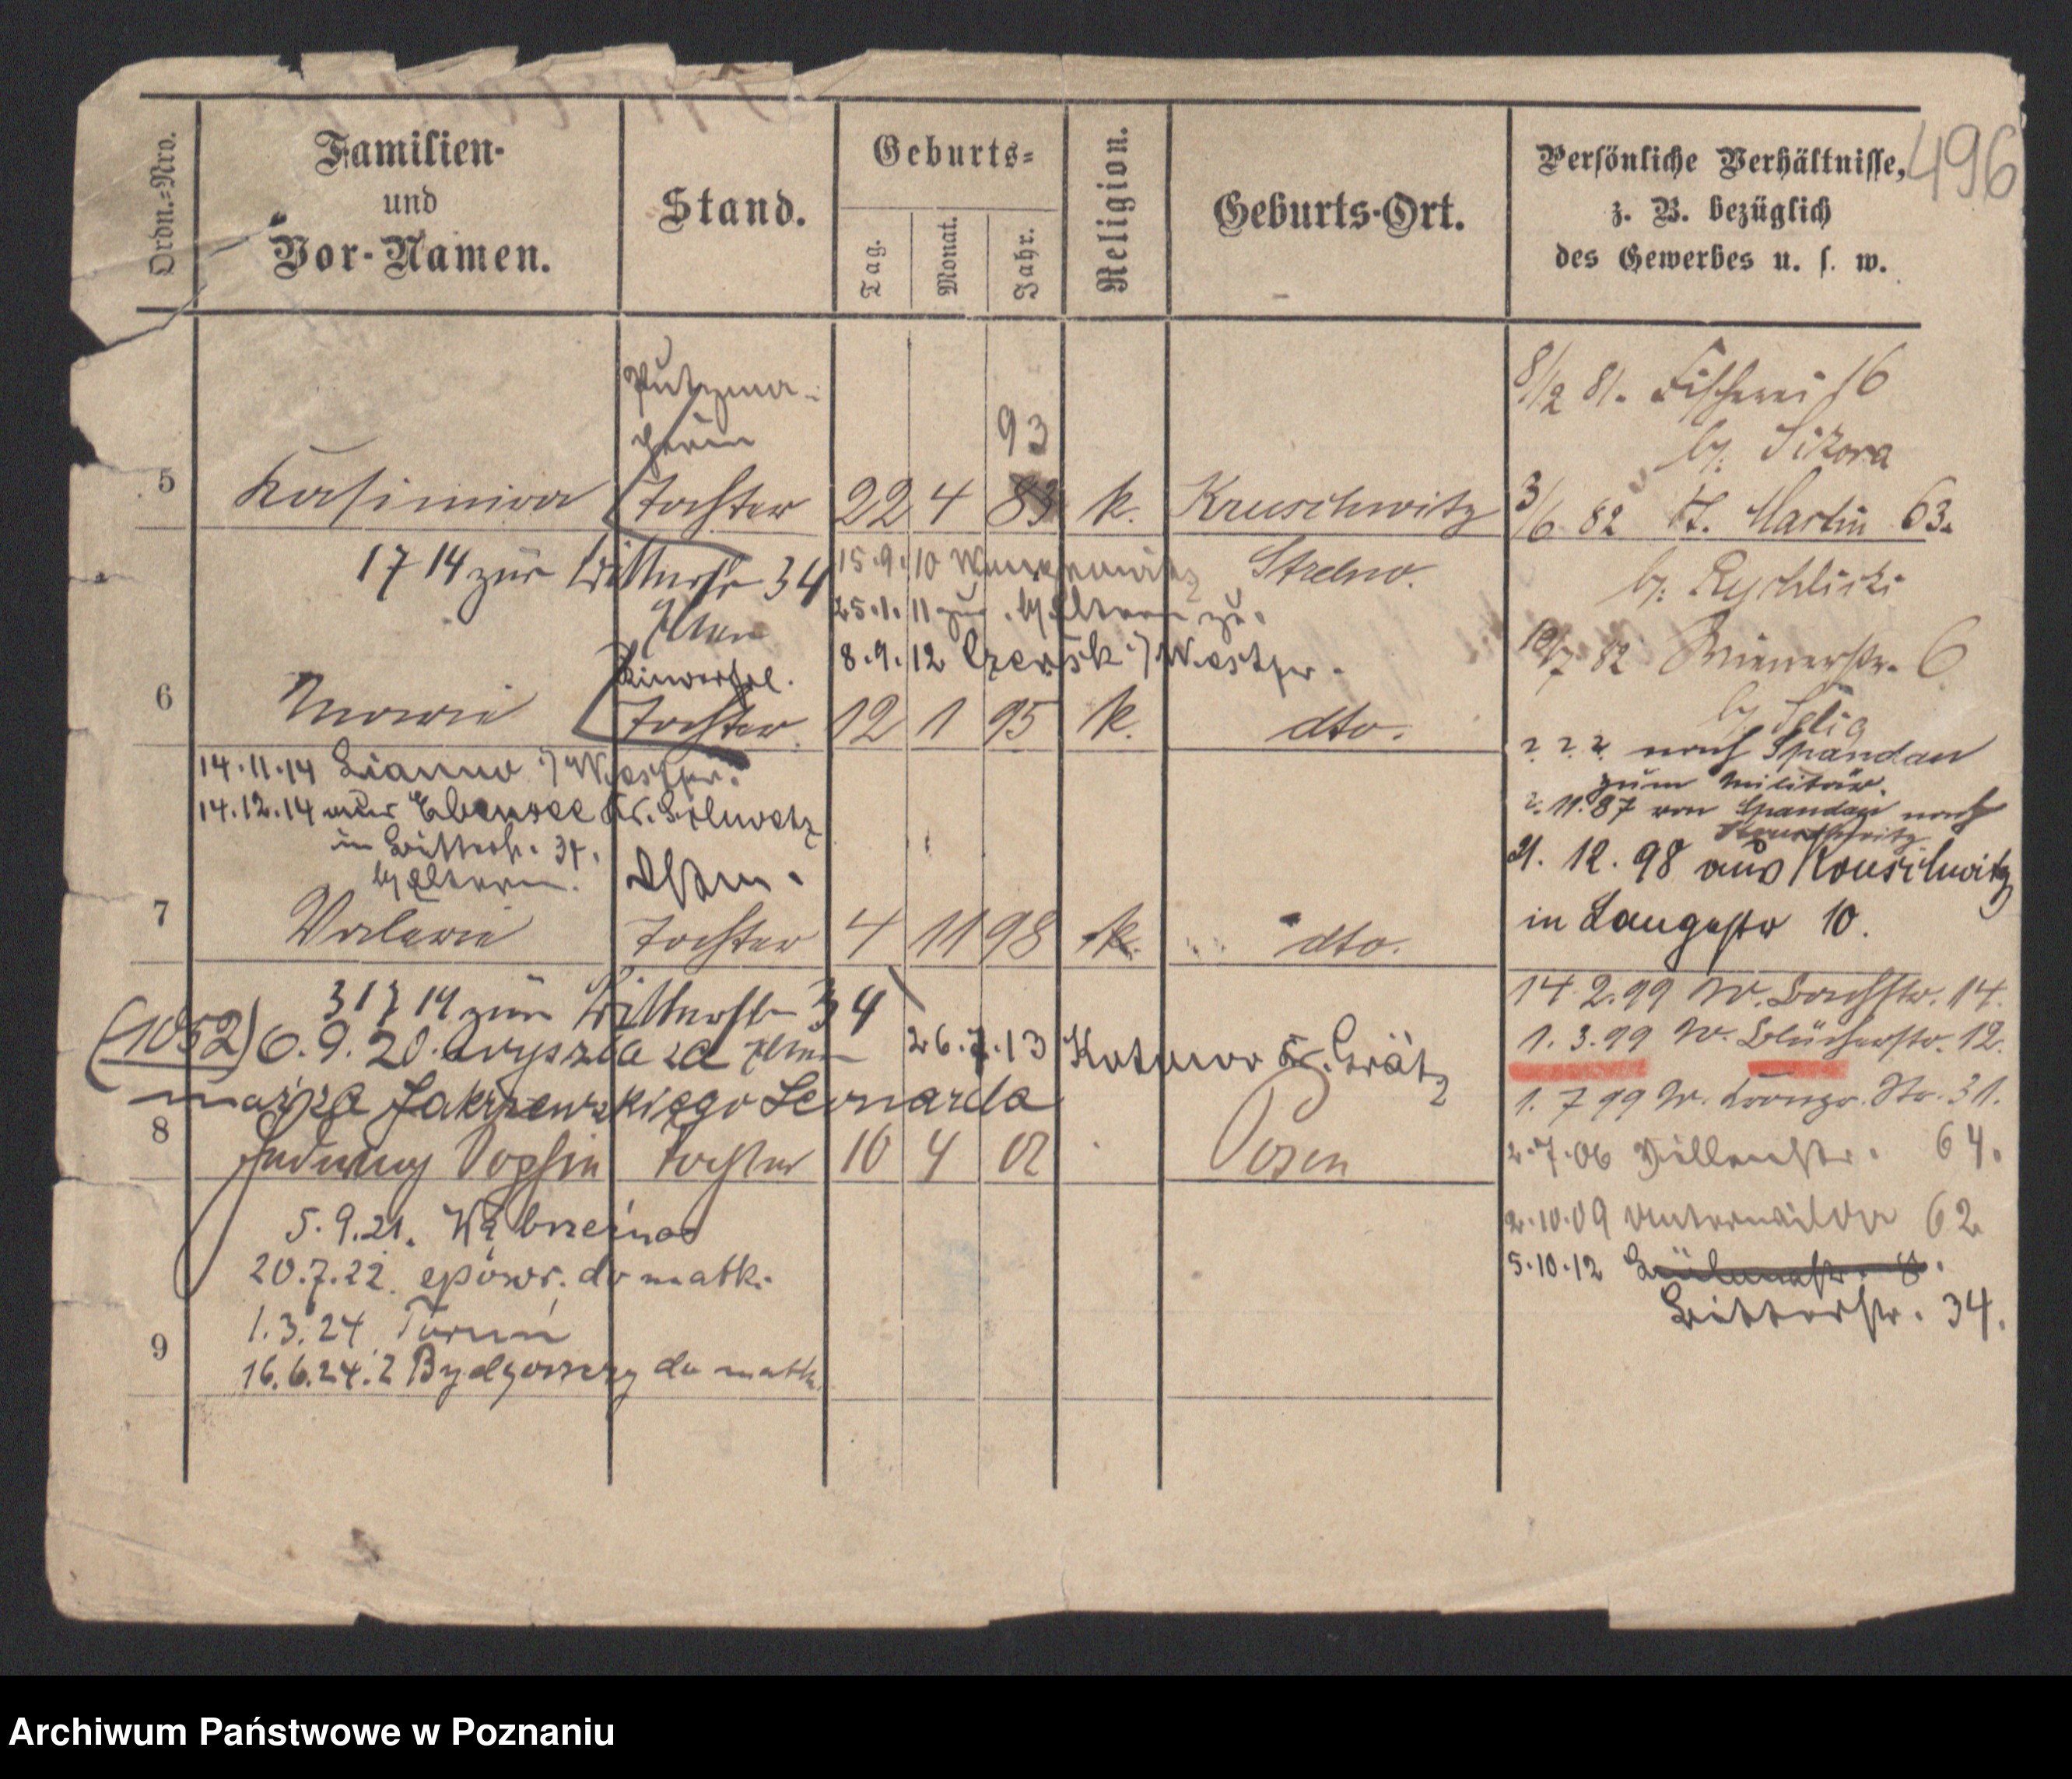 496
Ordn.=Nro.
Familien-
und
Vor-Namen.
Stand.
Geburts=
Tag.
Monat.
Jahr.
Religion.
Geburts-Ort.
Persönliche Verhältnisse,
z. B. bezüglich
des Gewerbes u. s. w.
Putzma-
cherin
93
5 Kasimira Tochter 22 4 k. Kruschwitz
17 14 zur Ritterstr 34
15.9.10 Strelno.
25.1.11 zur. b/ Eltern zu.
8.9.12 Czersk i/ Westpr.
6 Maria Tochter 12 1 95 k. dto.
14.11.14 i/ Westpr.
14.12.14 aus Ebensee Kr.
in Ritterstr. 34.
b/ Eltern.
7 Valerie Tochter 4 11 98 k. dto.
31 7 14 zur Ritterstr 34
26.7.13 Kr. Grätz
(1052) 6.9.20. wyszła za
męża Zakrzewskiego Leonarda
8 Hedwig Sophie Tochter 10 4 02 Posen
5.9.21. Wąbrzeźno
20.7.22. do matk.
1.3.24. Toruń
16.6.24. z Bydgoszczy do matk.
9
8/12 81. Fischerei 16
b/. Sikora
3/6 82 St. Martin 63.
b/. Rychlicki
82 Wienerstr. 6
b/. Selig
?.?.?. nach Spandau
zum Militär.
?.11.87 von Spandau nach
Kruschwitz
21.12.98 aus Kruschwitz
in Langestr 10.
14.2.99 W. Bachstr. 14.
1.3.99 W. Blücherstr. 12.
1.7 99 W. Kronpr. Str. 31.
2.7.06 64.
2.10.09 Unterwilda 62
5.10.12
Ritterstr. 34.
Archiwum Państwowe w Poznaniu